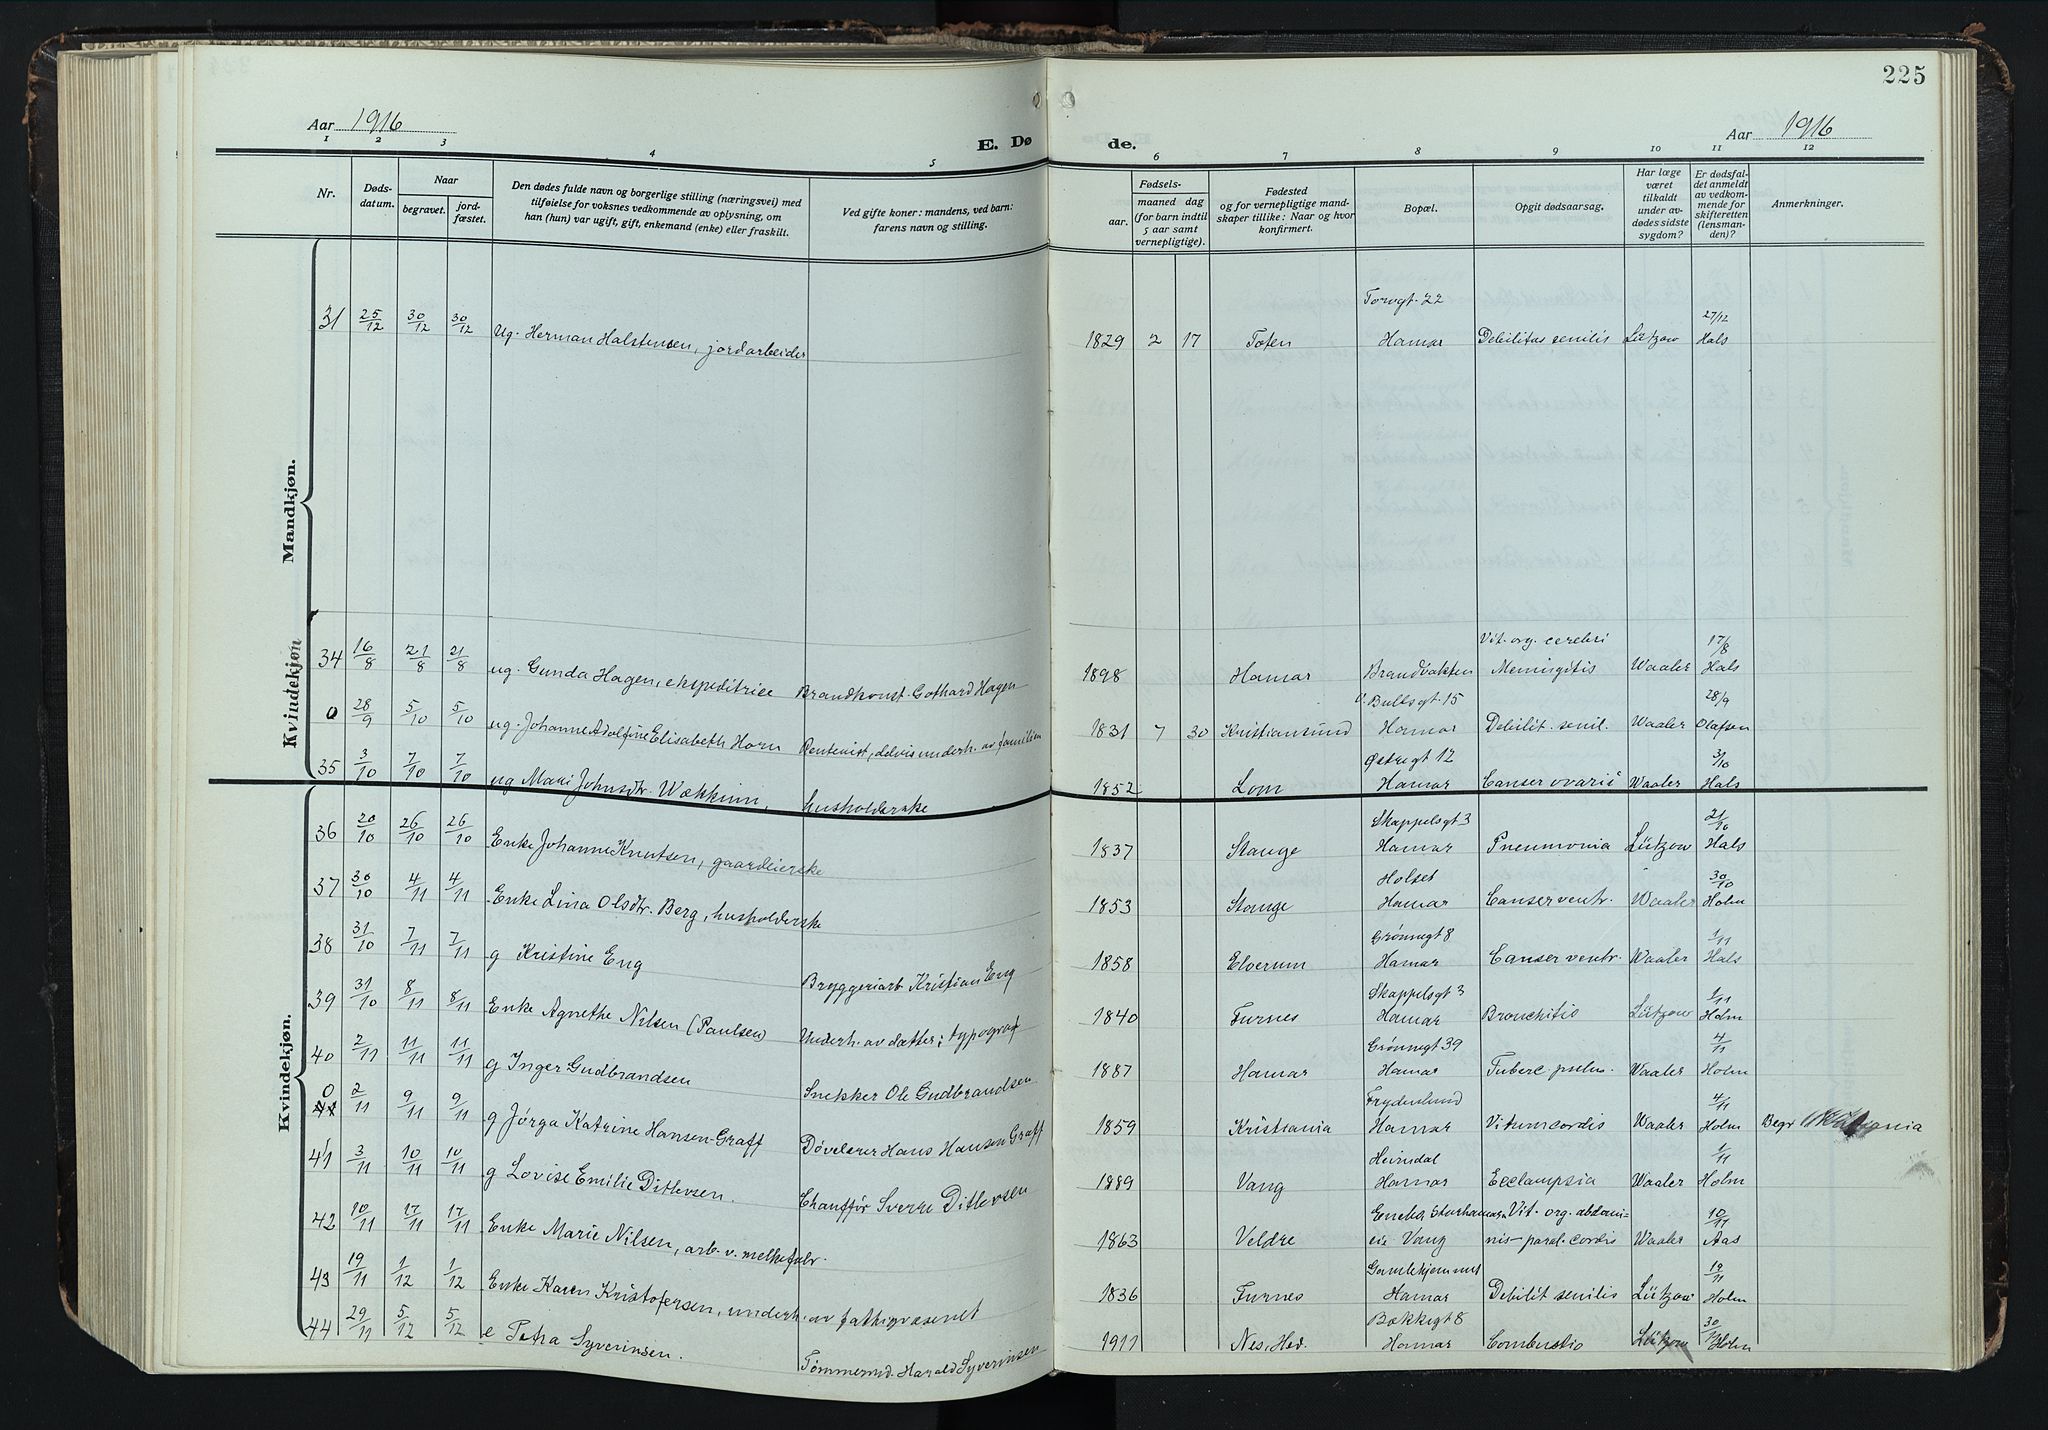 225
Aar 1916
E. Dø de.
Aar 1916
1 2 3 4 5 6 7 8 9 10 11 12
Nr.
Døds-
datum.
Naar
begravet.
jord-
fæstet.
Den dødes fulde navn og borgerlige stilling (næringsvei) med
tilføielse for voksnes vedkommende av oplysning, om
han (hun) var ugift, gift, enkemand (enke) eller fraskilt.
Ved gifte koner: mandens, ved barn:
farens navn og stilling.
Fødsels-
aar.
maaned dag
(for barn indtil
5 aar samt
vernepligtige).
Fødested
og for vernepligtige mand-
skaper tillike: Naar og hvor
konfirmert.
Bopæl.
Opgit dødsaarsag.
Har læge
været
tilkaldt
under av-
dødes sidste
sygdom?
Er dødsfal-
det anmeldt
av vedkom-
mende for
skifteretten
(lensman-
den)?
Anmerkninger.
Mandkjøn.
Torvgt. 22 27/12
31 25/12 30/12 30/12 Ug. Herman Halstensen, jordarbeider 1829 2 17 Toten Hamar Debilitas senilis Lützow Hals
Kvindekjøn
Vit. org. cerebri 17/8
34 16/8 21/8 21/8 ug. Gunda Hagen, ekspeditrice Brandkonst. Gothard Hagen 1898 Hamar Brandvakten Meningitis Waaler Hals
O. Bullsgt. 15 28/9
0 28/9 5/10 5/10 ug. Johanne Adolfine Elisabeth Horn Rentenist, delvis underh. av familien 1831 7 30 Kristiansund Hamar Debilit. senil. Waaler Olafsen
Østregt 12 3/10
35 3/10 7/10 7/10 ug Mari Johnsdtr. Wækkinn, husholderske 1852 Lom Hamar Canser ovarii Waaler Hals
Kvindekjøn.
Skappelsgt 3 21/10
36 20/10 26/10 26/10 Enke Johanne Knutsen, gaardeierske 1837 Stange Hamar Pneumonia Lützow Hals
Holset 30/10
37 30/10 4/11 4/11 Enke Lina Olsdtr. Berg, husholderske 1853 Stange Hamar Canser ventr. Waaler Holm
Grønnegt 8 1/11
38 31/10 7/11 7/11 g Kristine Eng Bryggeriarb Kristian Eng 1858 Elverum Hamar Canser ventr. Waaler Hals
Skappelsgt 3 1/11
39 31/10 8/11 8/11 Enke Agnethe Nilsen (Paulsen) Underh. av dætter; typograf 1840 Furnes Hamar Bronchitis Lützow Holm
Grønnegt 39 4/11
40 2/11 11/11 11/11 g Inger Gudbrandsen Snekker Ole Gudbrandsen 1887 Hamar Hamar Tuberc. pulm. Waaler Holm
Frydenlund 4/11
0 41 2/11 9/11 9/11 g Jørga Katrine Hansen-Graff Døvelærer Hans Hansen Graff 1859 Kristiania Hamar Vitium cordis Waaler Holm Begr
Heimdal 1/11
41 3/11 10/11 10/11 g Lovise Emilie Ditlevsen. Chauffør Sverre Ditlevsen 1889 Vang Hamar Ecclampsia Waaler Holm
Storhamar Vit. org. abdomi- 10/11
42 10/11 17/11 17/11 Enke Marie Nilsen, arb. v. melkefabr. 1863 Veldre Vang nis-paral. cordis Waaler Aas
Gamlehjemmet 19/11
43 19/11 1/12 1/12 Enke Karen Kristofersen, underh. av fattigvæsenet 1836 Furnes Hamar Debilit senilis Lützow Holm
Bækkegt 8 30/11
44 29/11 5/12 5/12 e Petra Syverinsen. Tømmermd. Harald Syverinsen 1911 Nes, Hed. Hamar Combustio Lützow Holm